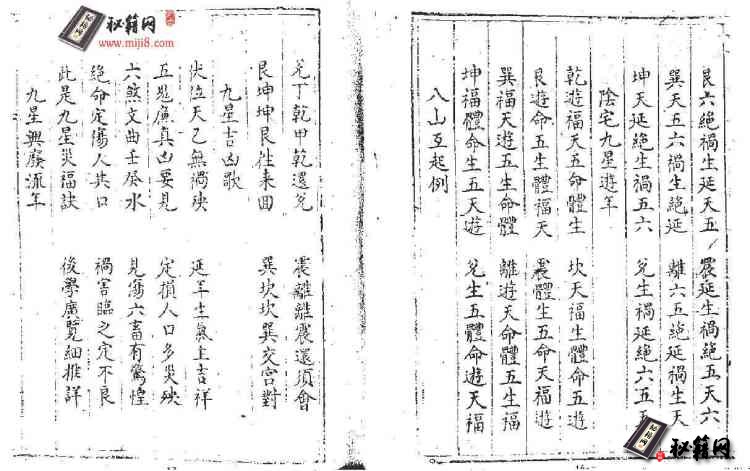 艮六絶禍生延天五 震延生禍絶五天六
巽天五六禍生絶延 離六五絶延禍生天
坤天延絶生禍五六 兌生禍延絶六五
陰宅九星遊年
乾遊福天五命體生 坎天福生體命五遊
艮遊命五生體福天 震體生五命天福遊
巽福天遊五生命體 離遊天命體五生福
坤福體命生五天遊 兌生五體命遊天福
八山互起例
兌丁乾甲乾還兌 震離離震還須會
艮坤坤艮往来回 巽坎坎巽交宮對
九星吉凶歌
伏位天乙無禍殃 延年生炁主吉祥
五鬼廉貞凶要見 定損人口多災殃
六煞文曲壬癸水 見傷六畜有驚惶
絶命定傷人共口 禍害臨之定不良
此是九星災福訣 後學廣覽細推詳
九星興廢流年
秘籍网
www.miji8.com
秘籍网